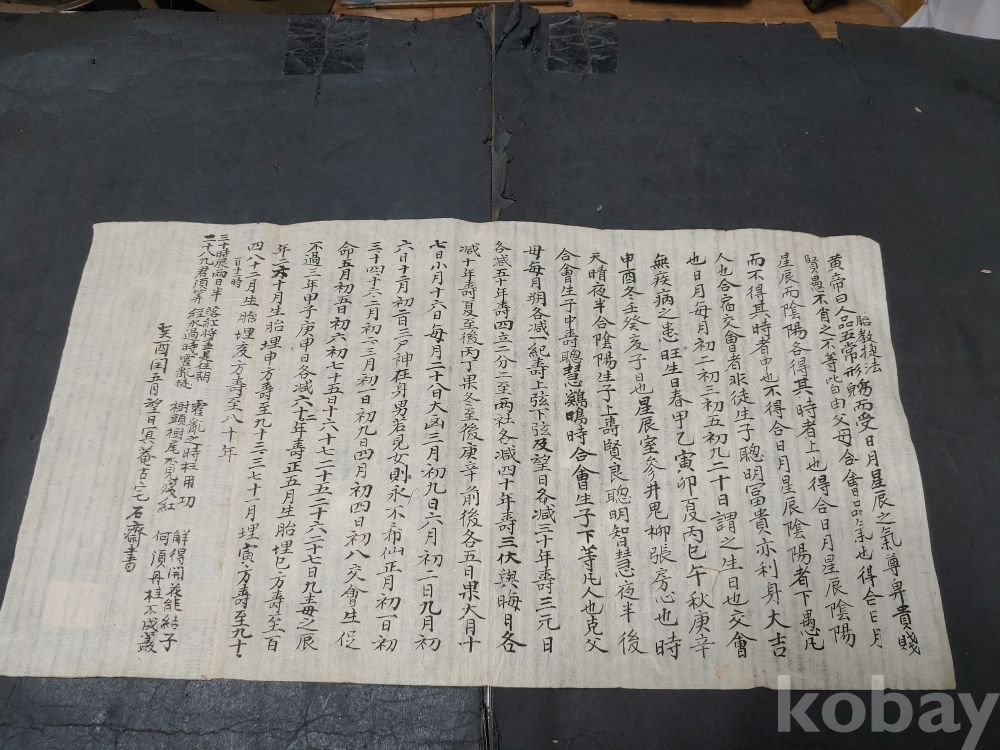 胎教撗法
黃帝曰人品五常形貌而受日月星辰之氣尊卑貴賤
賢愚不肖之不等皆由父母合會品氣也得合日月
星辰而陰陽各得其時者上也得合日月星辰陰陽
而不得其時者中也不得合日月星辰陰陽者下愚凡
人也合宿交會者非徒生子聰明冨貴亦利身大吉
也日月每月初二初三初五初九二十日謂之生日也交會
無疾病之患旺生日春甲乙寅卯夏丙巳午秋庚辛
申酉冬壬癸亥子日也星辰室參井鬼柳張房心也時
天晴夜半合陰陽生子上壽賢良聰明智慧夜半後
合會生子中壽聰慧鷄鳴時合會生子下等凡人也克父
母每月朔各减一紀壽上弦下弦及望日各减三十年壽三元日
各减五十年壽四立二分二至兩社各减四十年壽三伏與晦日各
减十年壽夏至後丙丁果冬至後庚辛前後各五日果大月十
七日小月十六日每月二十八日大凶三月初九日六月初二日九月初
六日十二月初二日三尸神在身男若見女則永不希仙正月初一日初
三十四十六二月初二三月初一日初九日四月初四初八交會生促
命五月初五日初六初七十五日十六七二十五二十六二十七日九毒每之辰
不過三年甲子庚申日各减六十二年壽正五月生胎埋巳方壽至一百
年二六十月生胎埋申方壽至九十三三七十一月埋寅方壽至九十
四八十二月生胎埋亥方壽至八十年
三十時辰兩日半
二十八九君須筭
落紅將盡是佳期
經水過時空霍乱徒
霍亂之時枉用功
樹頭樹尾不見殘紅
解得開花能結子
何須丹桂不成叢
癸酉閏五月望日冥菴古宅石齋書
kobay